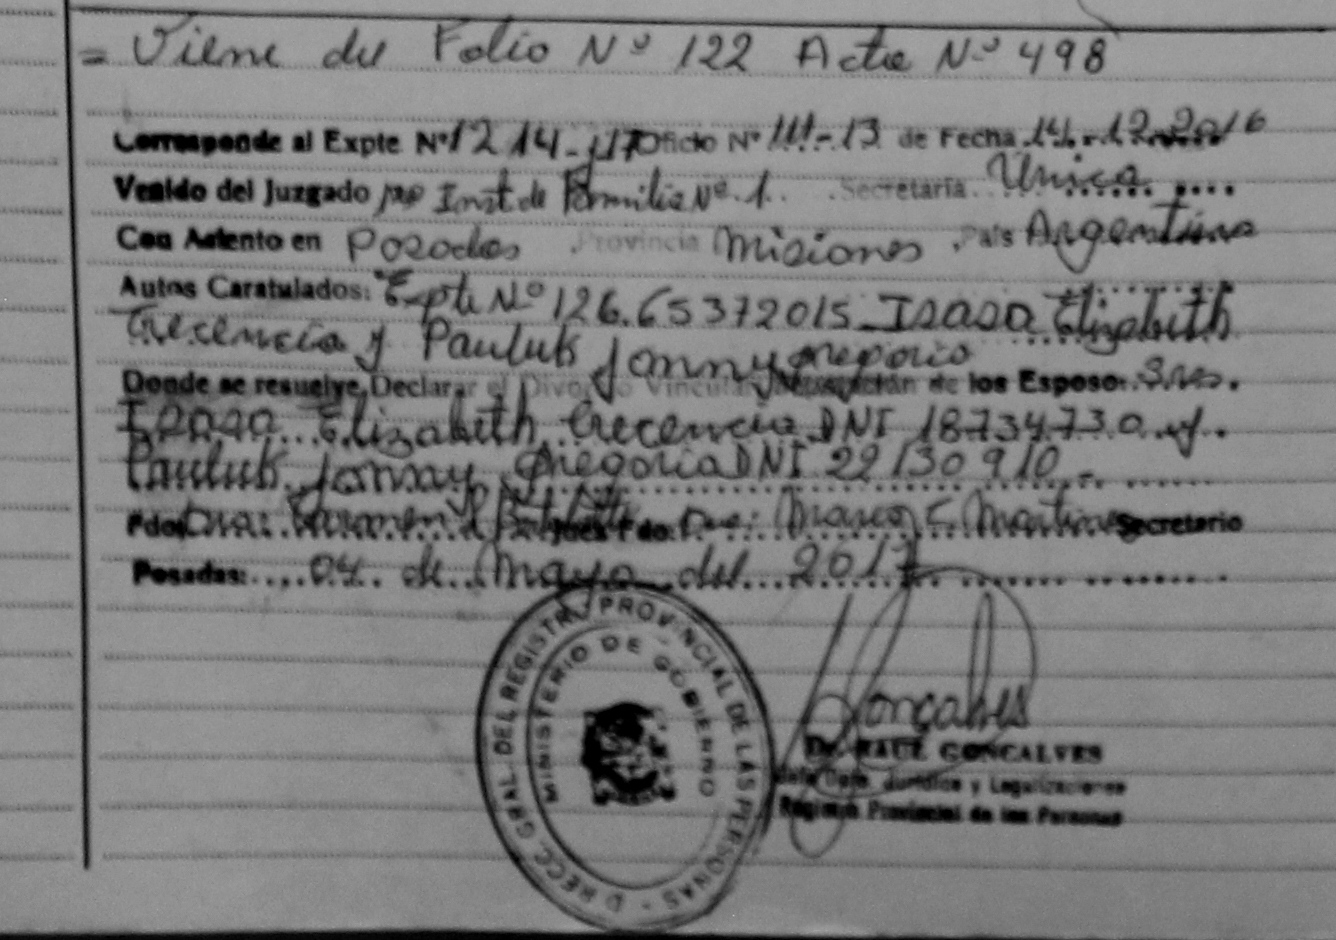 = Viene del Folio Nº 122 Acta Nº 498
Corresponde al Expte Nº 1214-J-17 Oficio Nº 1111-13 de Fecha 14.12.2016
Venido del Juzgado Inst de Familia Nº 1. Secretaría Unica
Con Asiento en Posadas Provincia Misiones País Argentina
Autos Caratulados: Expte Nº 126.65372015 Isasa Elizabeth
Crecencia y Pauluk Jonny gregorio
Donde se resuelve, Declarar el Divorcio Vincular de los Esposo: Sres.
Isasa Elizabeth Crecencia DNI 18734730 y
Pauluk Jonny gregorio DNI 22130910
Fdo. Dra: Juez Fdo. Secretario
Posadas: 04 de Mayo del 2017
DIRECC. GRAL. DEL REGISTRO PROVINCIAL DE LAS PERSONAS -
MINISTERIO DE GOBIERNO
Gonçalves
Dr. RAUL GONCALVES
Jefe Dpto. Jurídica y Legalizaciones
Registro Provincial de las Personas